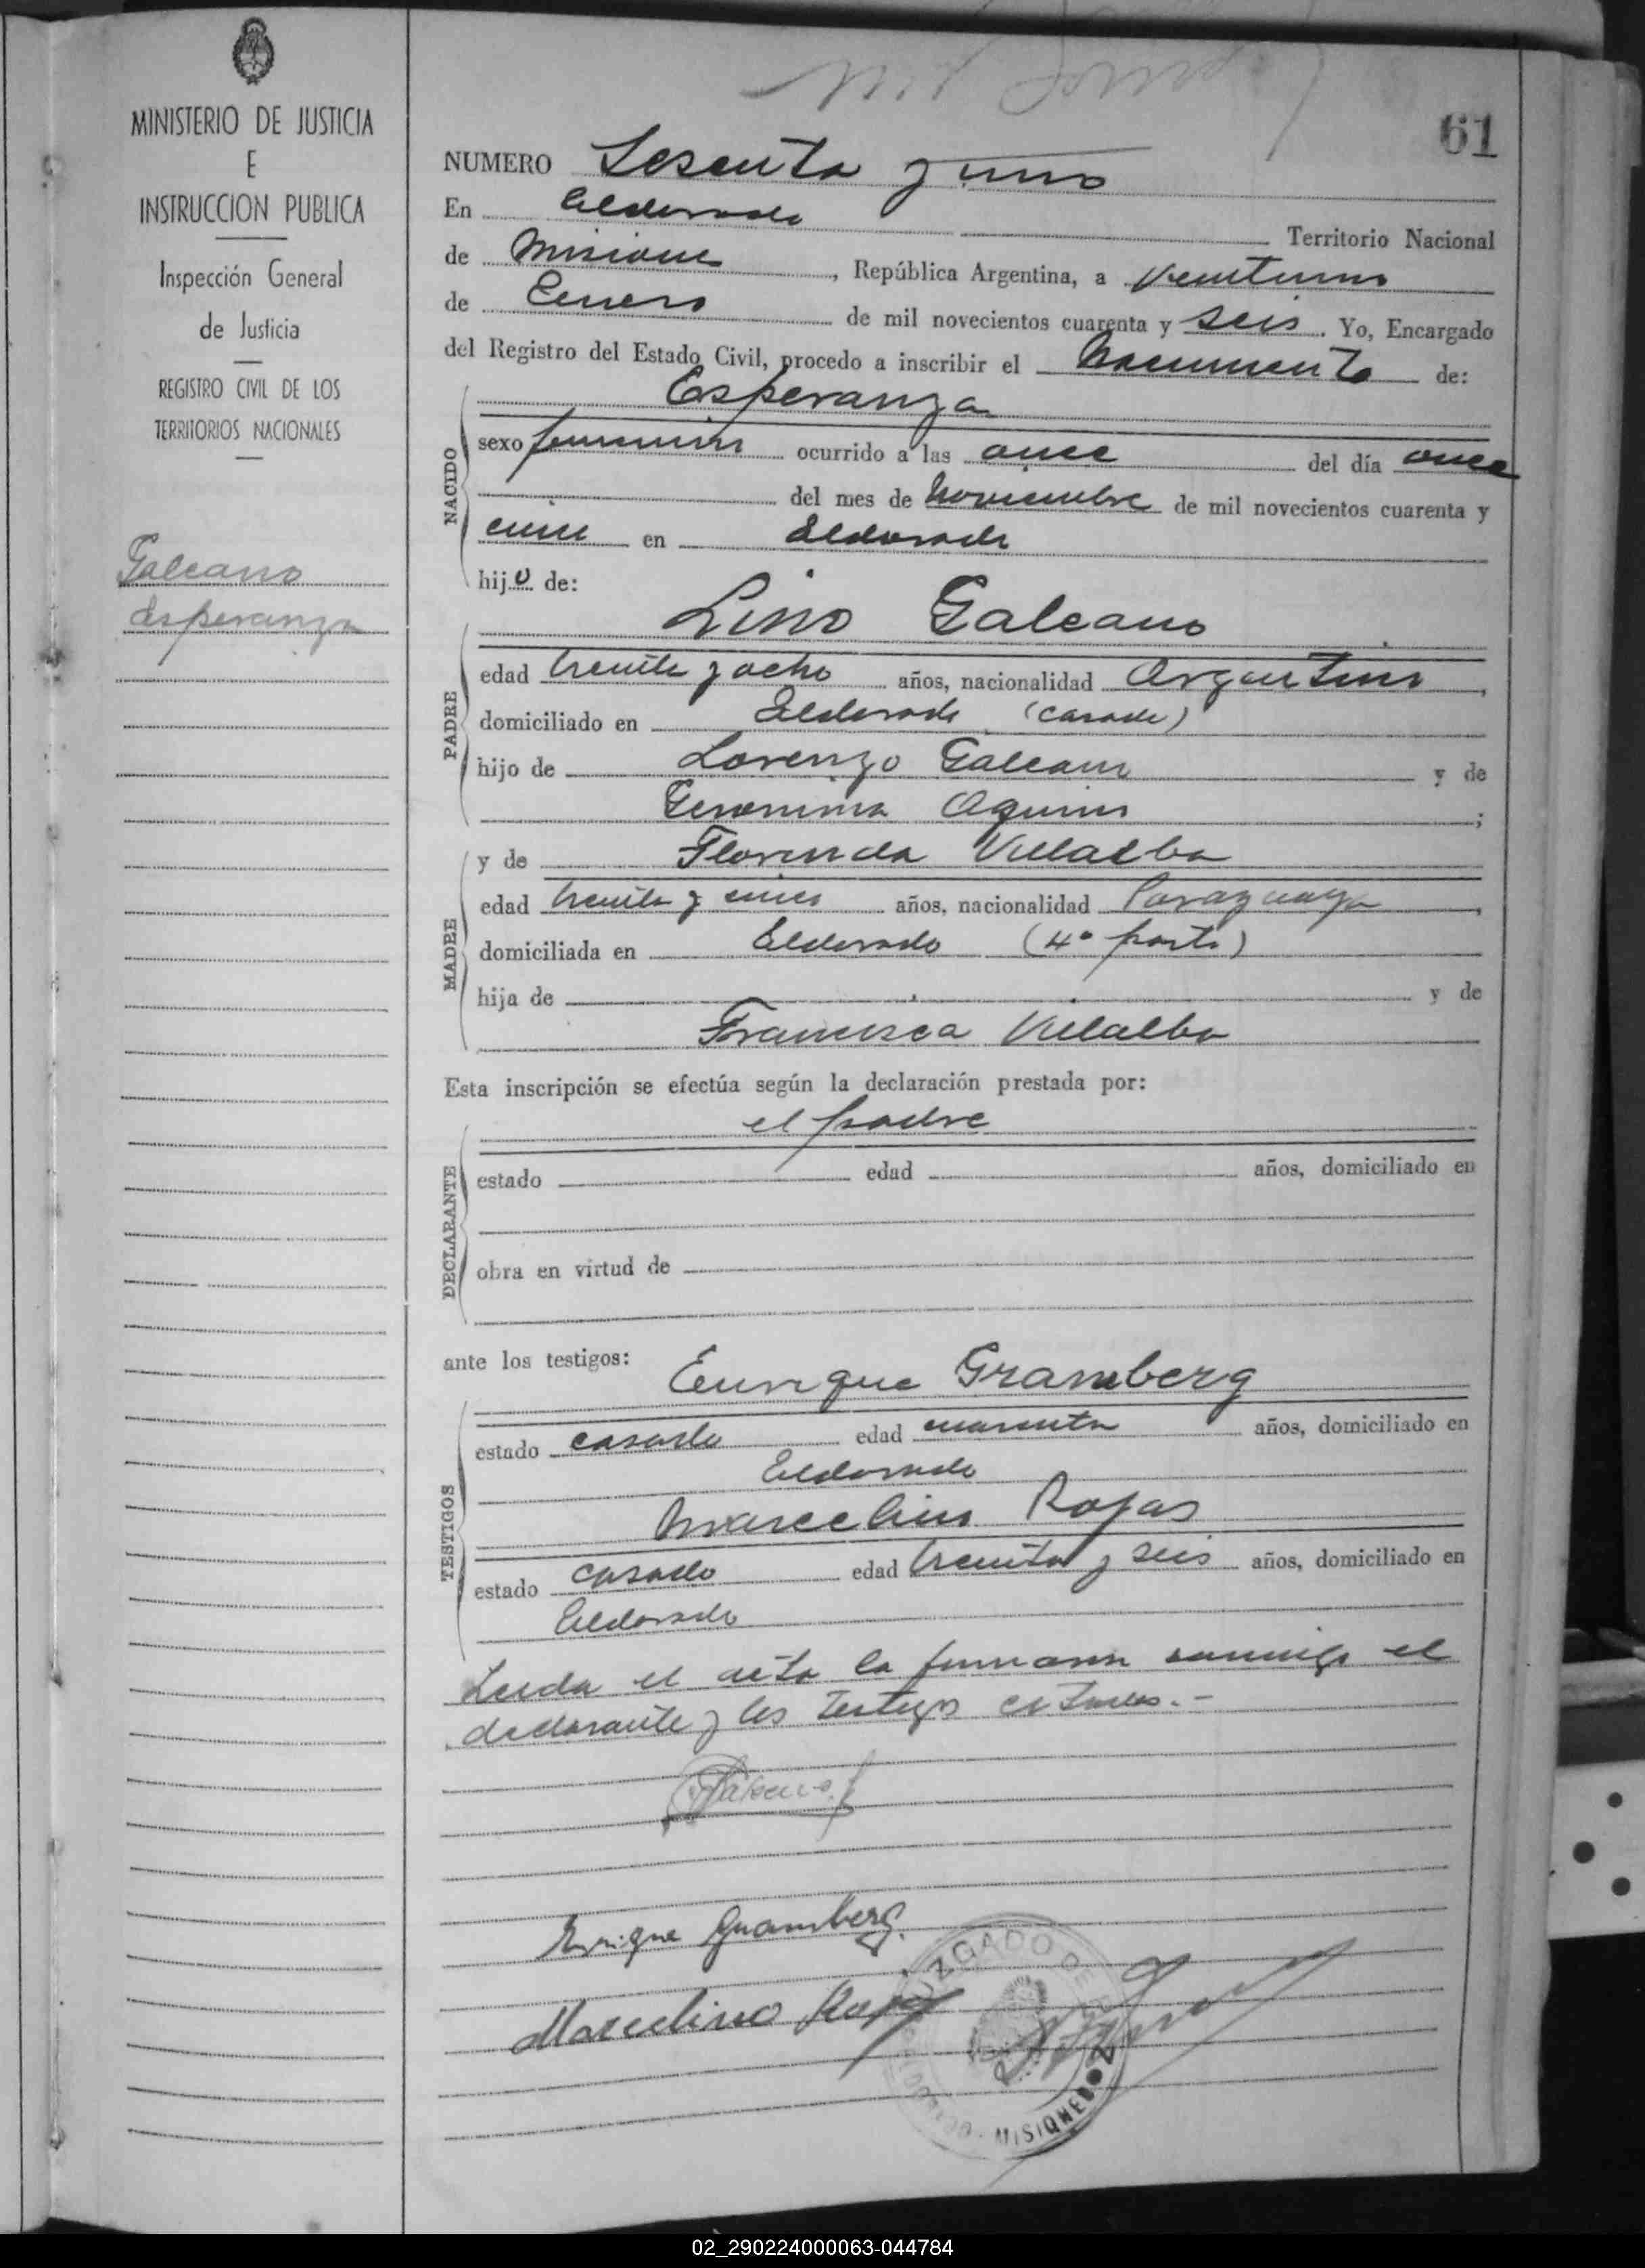 MINISTERIO DE JUSTICIA
E
INSTRUCCION PUBLICA
Inspección General
de Justicia
REGISTRO CIVIL DE LOS
TERRITORIOS NACIONALES
Galeano
Esperanza
61
NUMERO Sesenta y uno
En Eldorado Territorio Nacional
de Misiones, República Argentina, a veintiuno
de Enero de mil novecientos cuarenta y seis. Yo, Encargado
del Registro del Estado Civil, procedo a inscribir el Nacimiento de:
Esperanza
NACIDO
sexo femenino ocurrido a las once del día once
del mes de Noviembre de mil novecientos cuarenta y
cinco en Eldorado
hijo de:
Lino Galeano
PADRE
edad treinta y ocho años, nacionalidad Argentino,
domiciliado en Eldorado (casado)
hijo de Lorenzo Galeano y de
Geronima Aquino;
MADRE
y de Florinda Villalba
edad treinta y cinco años, nacionalidad Paraguaya,
domiciliada en Eldorado (4° parto)
hija de y de
Francisca Villalba
Esta inscripción se efectúa según la declaración prestada por:
el padre
DECLARANTE
estado edad años, domiciliado en
obra en virtud de
ante los testigos:
Enrique Gramberg
TESTIGOS
estado casado edad cuarenta años, domiciliado en
Eldorado
Marcelino Rojas
estado casado edad treinta y seis años, domiciliado en
Eldorado
Leida el acta la firmaron conmigo el
declarante y los testigos citados.-
Galeano
Enrique Gramberg.
Marcelino Rojas
JUZGADO DE PAZ
ELDORADO - MISIONES
02_290224000063-044784